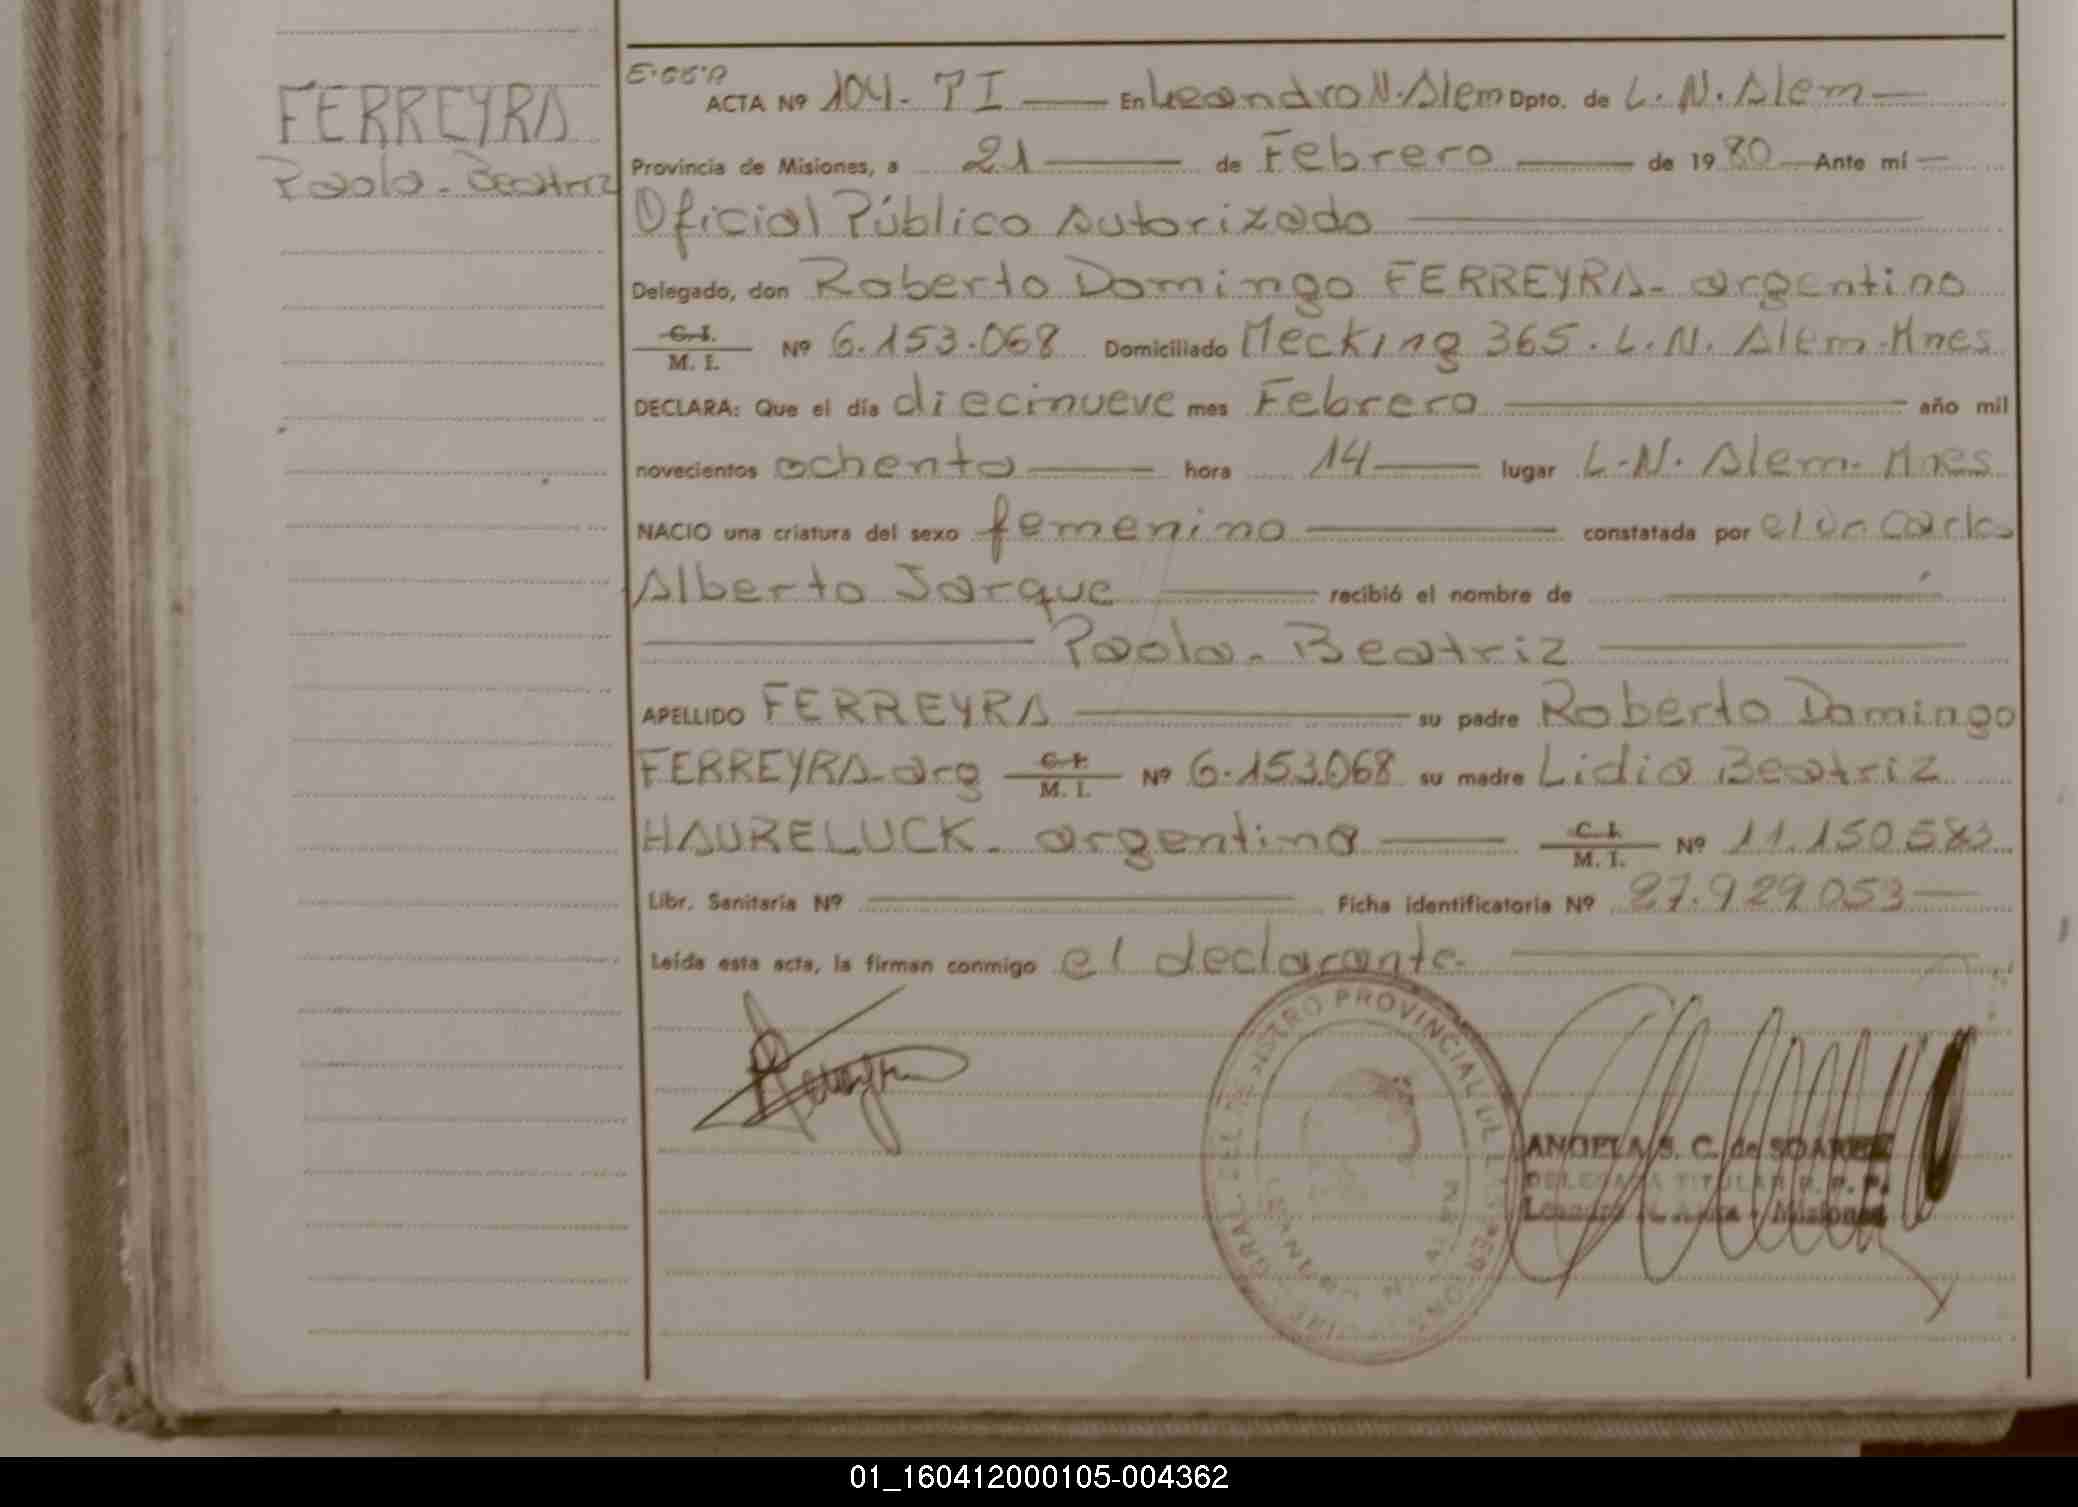 FERREYRA
Paola - Beatriz
ACTA Nº 104 - TI En Leandro N. Alem Dpto. de L. N. Alem
Provincia de Misiones, a 21 de Febrero de 1980 Ante mí
Oficial Público Autorizado
Delegado, don Roberto Domingo FERREYRA - argentino
C. I. M. I. Nº 6.153.068 Domiciliado Mecking 365 - L. N. Alem - Mnes
DECLARA: Que el día diecinueve mes Febrero año mil
novecientos ochenta hora 14 lugar L. N. Alem - Mnes
NACIO una criatura del sexo femenino constatada por el Dr Carlos
Alberto Jarque recibió el nombre de
Paola - Beatriz
APELLIDO FERREYRA su padre Roberto Domingo
FERREYRA - arg C. I. M. I. Nº 6.153.068 su madre Lidia Beatriz
HAURELUCK - argentina C. I. M. I. Nº 11.150.583
Libr. Sanitaria Nº Ficha identificatoria Nº 27.929.053
Leída esta acta, la firman conmigo el declarante.
REGISTRO PROVINCIAL DE LAS PERSONAS
ANGELA S. C. de SOAREZ
DELEGADA TITULAR R. P. P.
Misiones
01_160412000105-004362